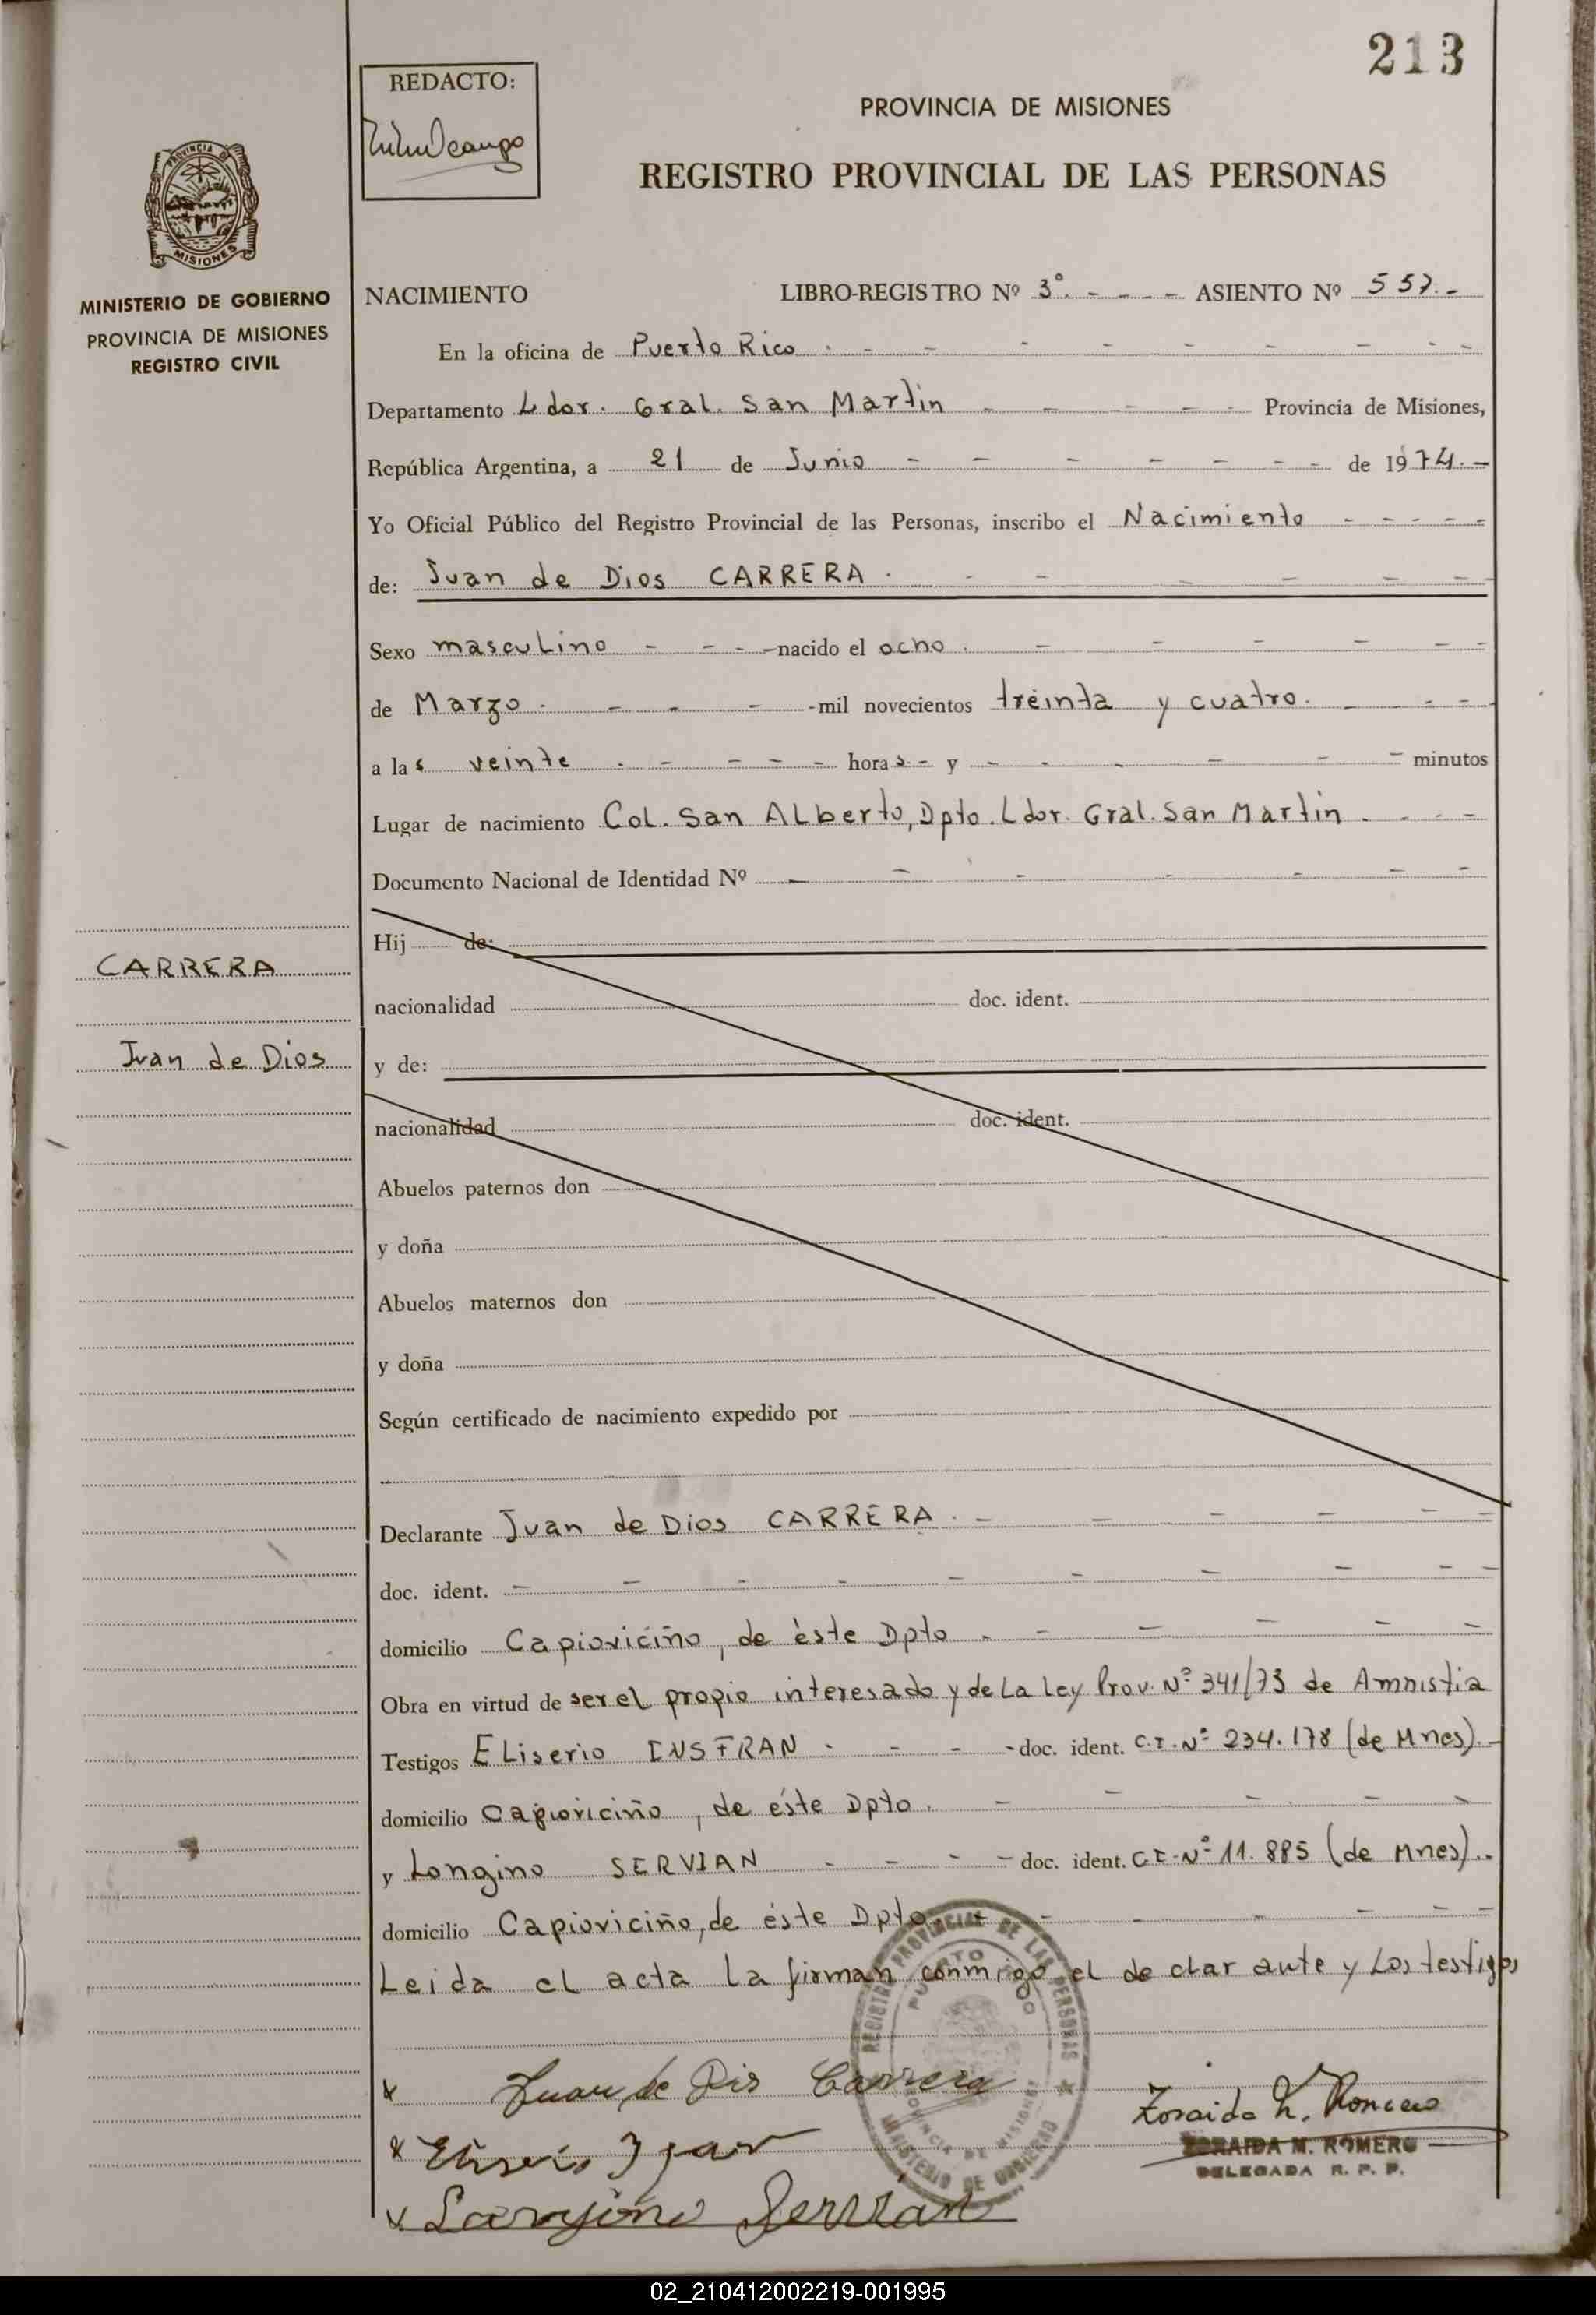 213
REDACTO:
PROVINCIA DE MISIONES
REGISTRO PROVINCIAL DE LAS PERSONAS
PROVINCIA DE
MISIONES
MINISTERIO DE GOBIERNO
PROVINCIA DE MISIONES
REGISTRO CIVIL
NACIMIENTO LIBRO-REGISTRO Nº 3º. - - - - ASIENTO Nº 557.-
En la oficina de Puerto Rico . - - - - - - - - -
Departamento Ldor. Gral. San Martin - - - - - Provincia de Misiones,
República Argentina, a 21 de Junio - - - - - - - de 1974.-
Yo Oficial Público del Registro Provincial de las Personas, inscribo el Nacimiento - - - - -
de: Juan de Dios CARRERA . - - - - - -
Sexo masculino - - - - nacido el ocho . - - - - - -
de Marzo . - - - - mil novecientos treinta y cuatro. - - -
a las veinte . - - - - horas.- y - - - - - - minutos
Lugar de nacimiento Col. San Alberto, Dpto. Ldor. Gral. San Martin . - - -
Documento Nacional de Identidad Nº - - - - - - -
Hij de:
CARRERA
nacionalidad doc. ident.
Juan de Dios
y de:
nacionalidad doc. ident.
Abuelos paternos don
y doña
Abuelos maternos don
y doña
Según certificado de nacimiento expedido por
Declarante Juan de Dios CARRERA . - - - - - -
doc. ident. - - - - - - - - - -
domicilio Capioviciño, de éste Dpto . - - - - -
Obra en virtud de ser el propio interesado y de La Ley Prov. Nº 341/73 de Amnistia
Testigos ELiserio INSFRAN - - - - doc. ident. C.I. Nº 234.178 (de Mnes).-
domicilio Capioviciño, de éste Dpto. - - - - -
y Longino SERVIAN - - - - doc. ident. C.I. Nº 11.885 (de Mnes)..
domicilio Capioviciño, de éste Dpto. - - - - - - -
Leida el acta La firman conmigo el declarante y Los testigos
REGISTRO PROVINCIAL DE LAS PERSONAS
PUERTO RICO
PROVINCIA DE MISIONES
MINISTERIO DE GOBIERNO
x Juan de Dis Carrera
Zoraida M. Romero
x
ZORAIDA M. ROMERO
DELEGADA R. P. P.
x Longino Servian
02_210412002219-001995